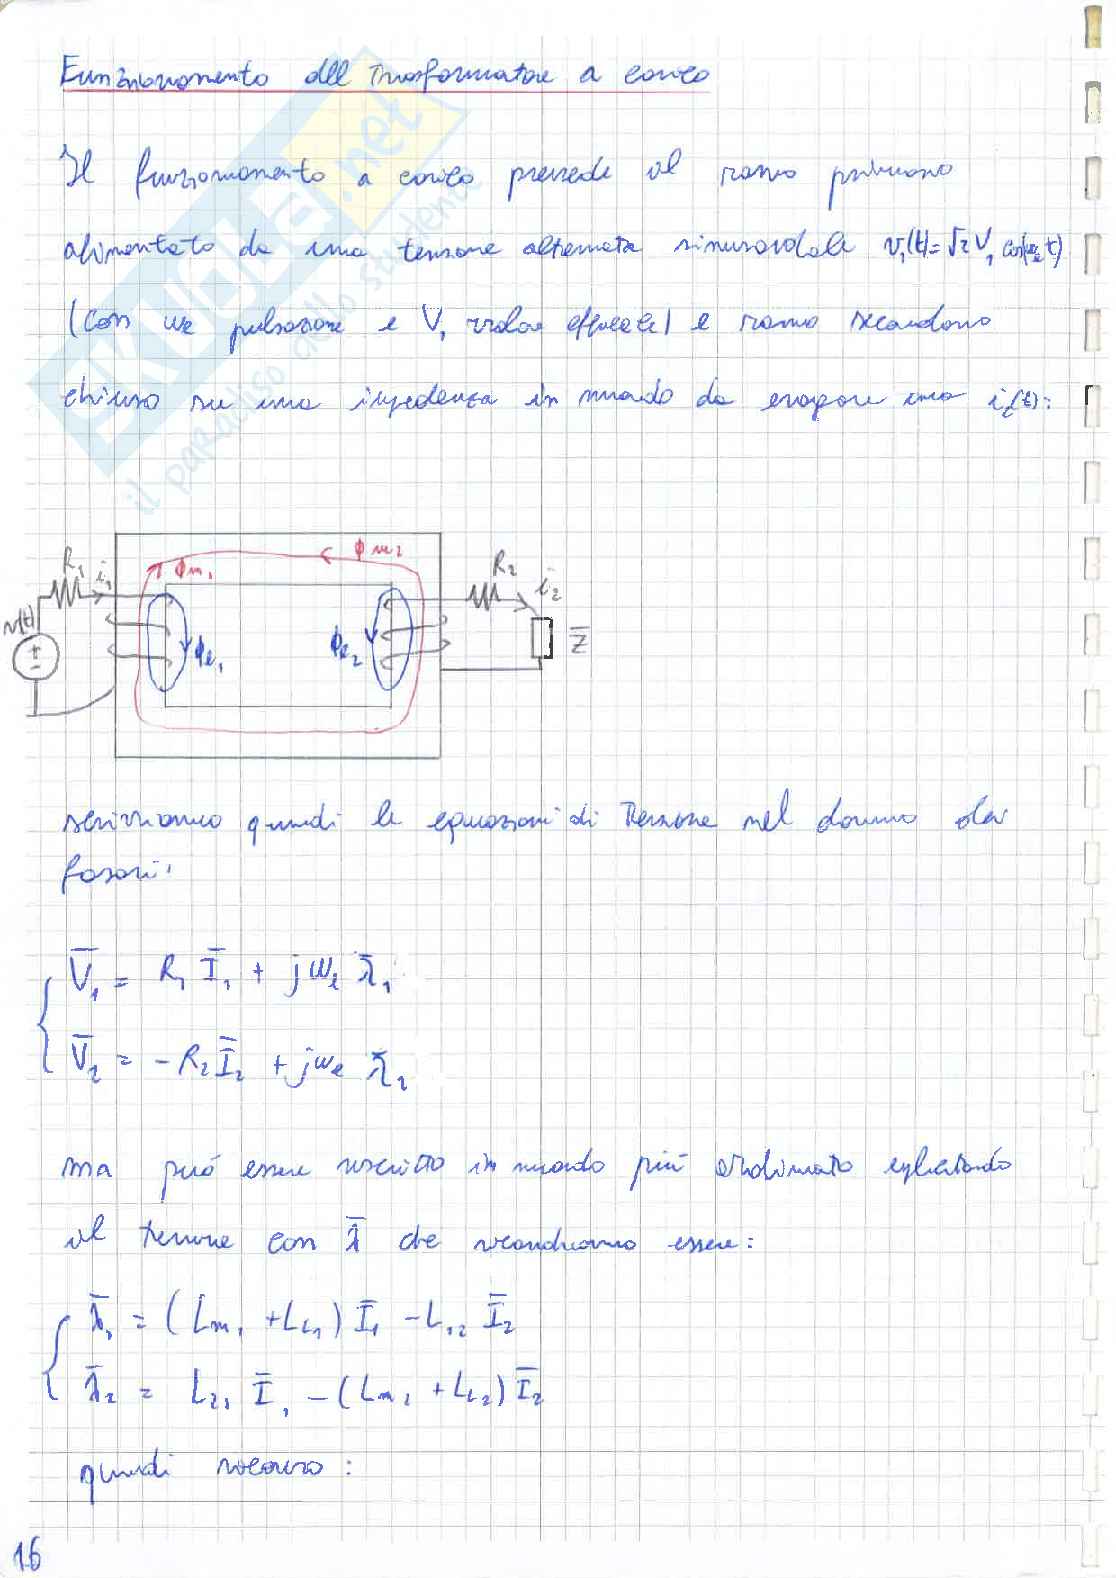 Funzionamento del Trasformatore a carico
Il funzionamento a carico prevede il ramo primario
alimentato da una tensione alternata sinusoidale v₁(t)=√2 V₁ cos(ωₑt)
(con ωₑ pulsazione e V₁ valore efficace) e ramo secondario
chiuso su una impedenza in modo da erogare una i₂(t):
SKUOLA.net
il paradiso dello studente
R₁ i₁ ϕm₁ ϕm₂ R₂ i₂
v(t) ϕe₁ ϕe₂ Z̅
scriviamo quindi le equazioni di Tensione nel dominio dei
fasori:
V̅₁ = R₁ I̅₁ + jωₑ λ̅₁
V̅₂ = -R₂ I̅₂ + jωₑ λ̅₂
ma può essere riscritto in modo più ordinato esplicitando
il termine con λ̅ che ricordiamo essere:
λ̅₁ = (Lm₁ + Ll₁) I̅₁ - L₁₂ I̅₂
λ̅₂ = L₂₁ I̅₁ - (Lm₂ + Ll₂) I̅₂
quindi
16